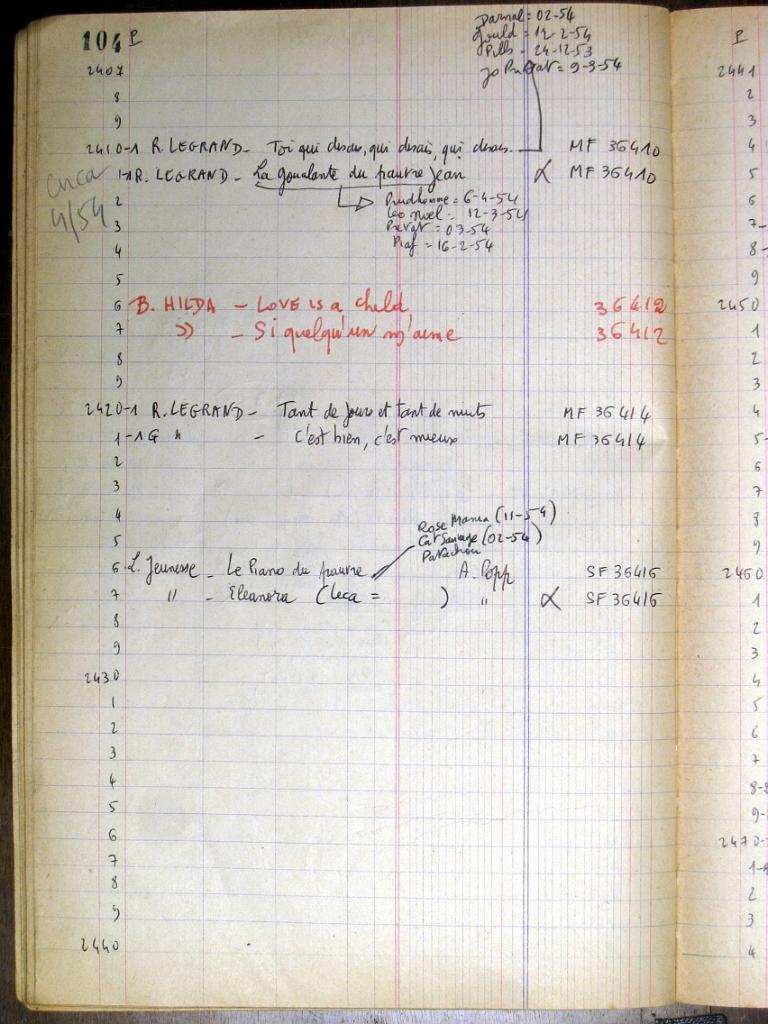 104 P
Darnal = 02-54
Gould = 12-2-54
Pills = 24-12-53
Jo Privat = 9-3-54
2407
8
9
2410-1 R. LEGRAND - Toi qui disais, qui disais, qui disais. MF 36410
1-1 R. LEGRAND - La goualante du pauvre Jean α MF 36410
circa 4/54
2 Prudhomme = 6-4-54
Leo Noel = 12-3-54
3 Privat = 03-54
4 Piaf = 16-2-54
5
6 B. HILDA - LOVE is a child 36412
7 » - Si quelqu'un m'aime 36412
8
9
2420-1 R. LEGRAND - Tant de jours et tant de nuits MF 36414
1-1 G " - C'est bien, c'est mieux MF 36414
2
3
4 Rose Mania (11-54)
5 Cat Sauvage (02-54)
Patachou
6 L. Jeunesse - Le Piano du pauvre A. Popp SF 36416
7 " - Eleanora (Leca = ) " α SF 36416
8
9
2430
1
2
3
4
5
6
7
8
9
2440
P
2441
2
3
4
5
6
7-
8-
9
2450
1
2
3
4
5-
6
7
8
9
2460
1
2
3
4
5
6
7
8-
9-
2470-
1-
2
3
4